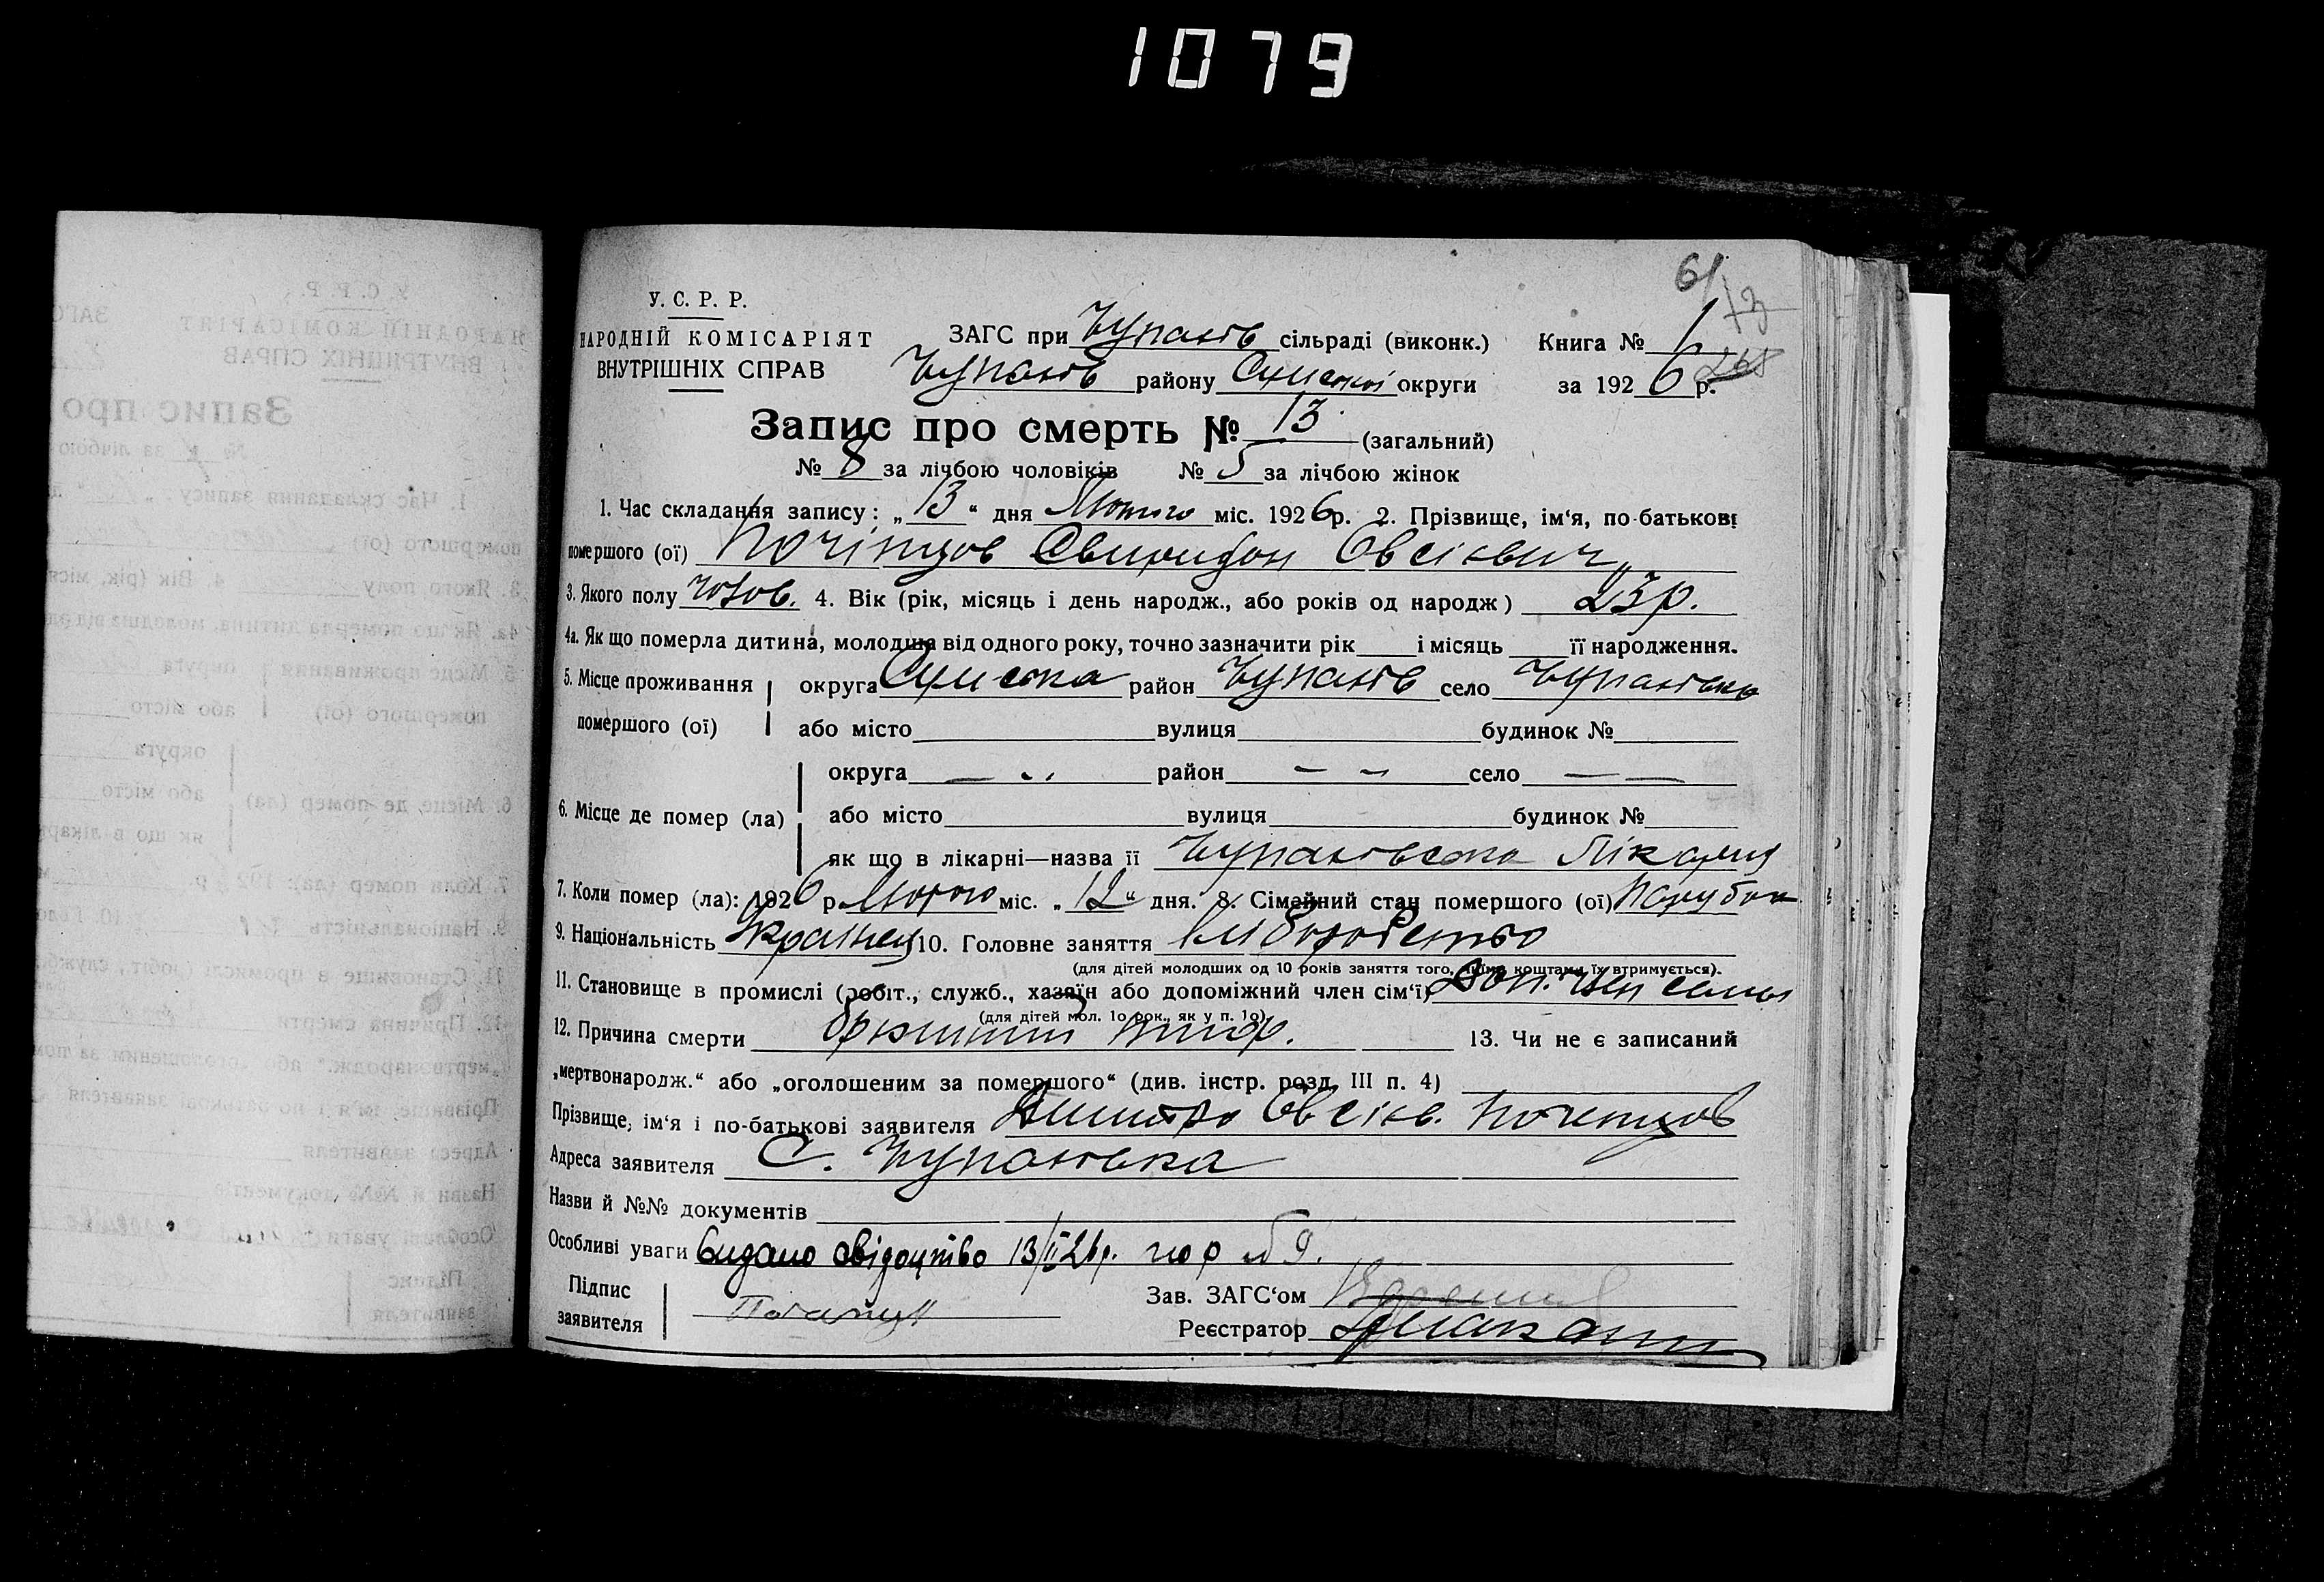 1079
61
13
У. С. Р. Р.
НАРОДНІЙ КОМІСАРІЯТ
ВНУТРІШНІХ СПРАВ
ЗАГС при Чупахів сільраді (виконк.) Книга № 1
Чупахів району Сумської округи за 1926 р.
Запис про смерть № 13 (загальний)
№ 8 за лічбою чоловіків № 5 за лічбою жінок
1. Час складання запису: „13“ дня Лютого міс. 1926 р. 2. Прізвище, ім‘я, по-батькові
помершого (ої) Почінцов Свиридон Овсієвич
3. Якого полу чолов. 4. Вік (рік, місяць і день народж., або років од народж) 23 р.
4а. Як що померла дитина, молодша від одного року, точно зазначити рік і місяць її народження.
5. Місце проживання помершого (ої) округа Сумська район Чупахів село Чупахівка
або місто вулиця будинок №
6. Місце де помер (ла) округа — „ район — — село — —
або місто вулиця будинок №
як що в лікарні—назва її Чупахівська Лікарня
7. Коли помер (ла): 1926 р. Лютого міс. „12“ дня. 8. Сімейний стан помершого (ої) Парубок
9. Національність Українец 10. Головне заняття хліборобство
(для дітей молодших од 10 років заняття того, чиїми коштами їх втримується).
11. Становище в промислі (робіт., служб., хазяїн або допоміжний член сім‘ї) Доп. член семьи
(для дітей мол. 10 рок., як у п. 10)
12. Причина смерти брюшний тиф. 13. Чи не є записаний
„мертвонародж.“ або „оголошеним за помершого“ (див. інстр. розд. III п. 4)
Прізвище, ім‘я і по-батькові заявителя Дмитро Овсієв. Почетцов
Адреса заявителя С. Чупахівка
Назви й №№ документів
Особливі уваги Видано свідоцтво 13/II 26 р. № 9.
Підпис заявителя Зав. ЗАГС‘ом
Реєстратор